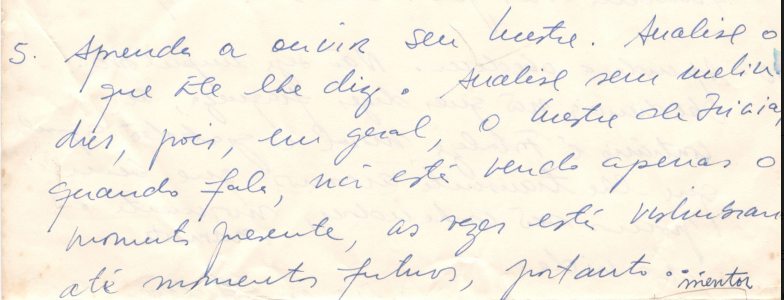 5. Aprenda a ouvir seu Mestre. Analise o
que Ele lhe diz. Analise sem melin
dres, pois, em geral, o Mestre da Inicia,
quando fala, não está vendo apenas o
momento presente, as vezes está vislumbran
até momentos futuros, portanto. mentor